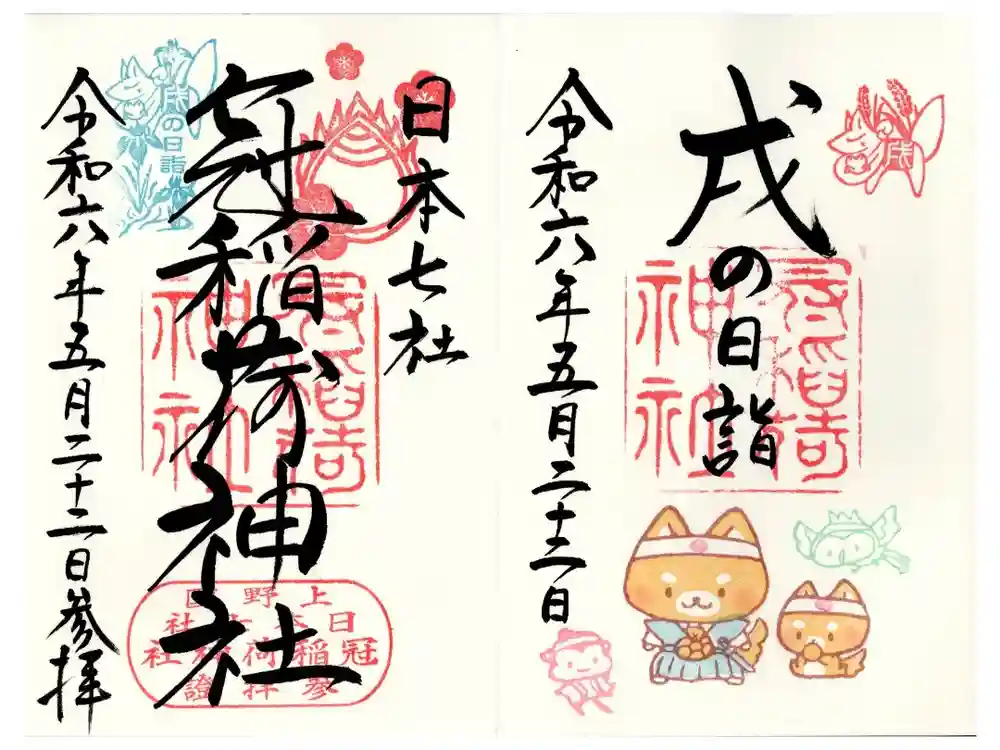 戌
戌の日詣
冠稲荷
神社
令和六年五月二十二日
日本七社
冠稲荷神社
冠稲荷
神社
戌の日詣
令和六年五月二十二日參拝
日本七社
冠稲荷神社
參拝證